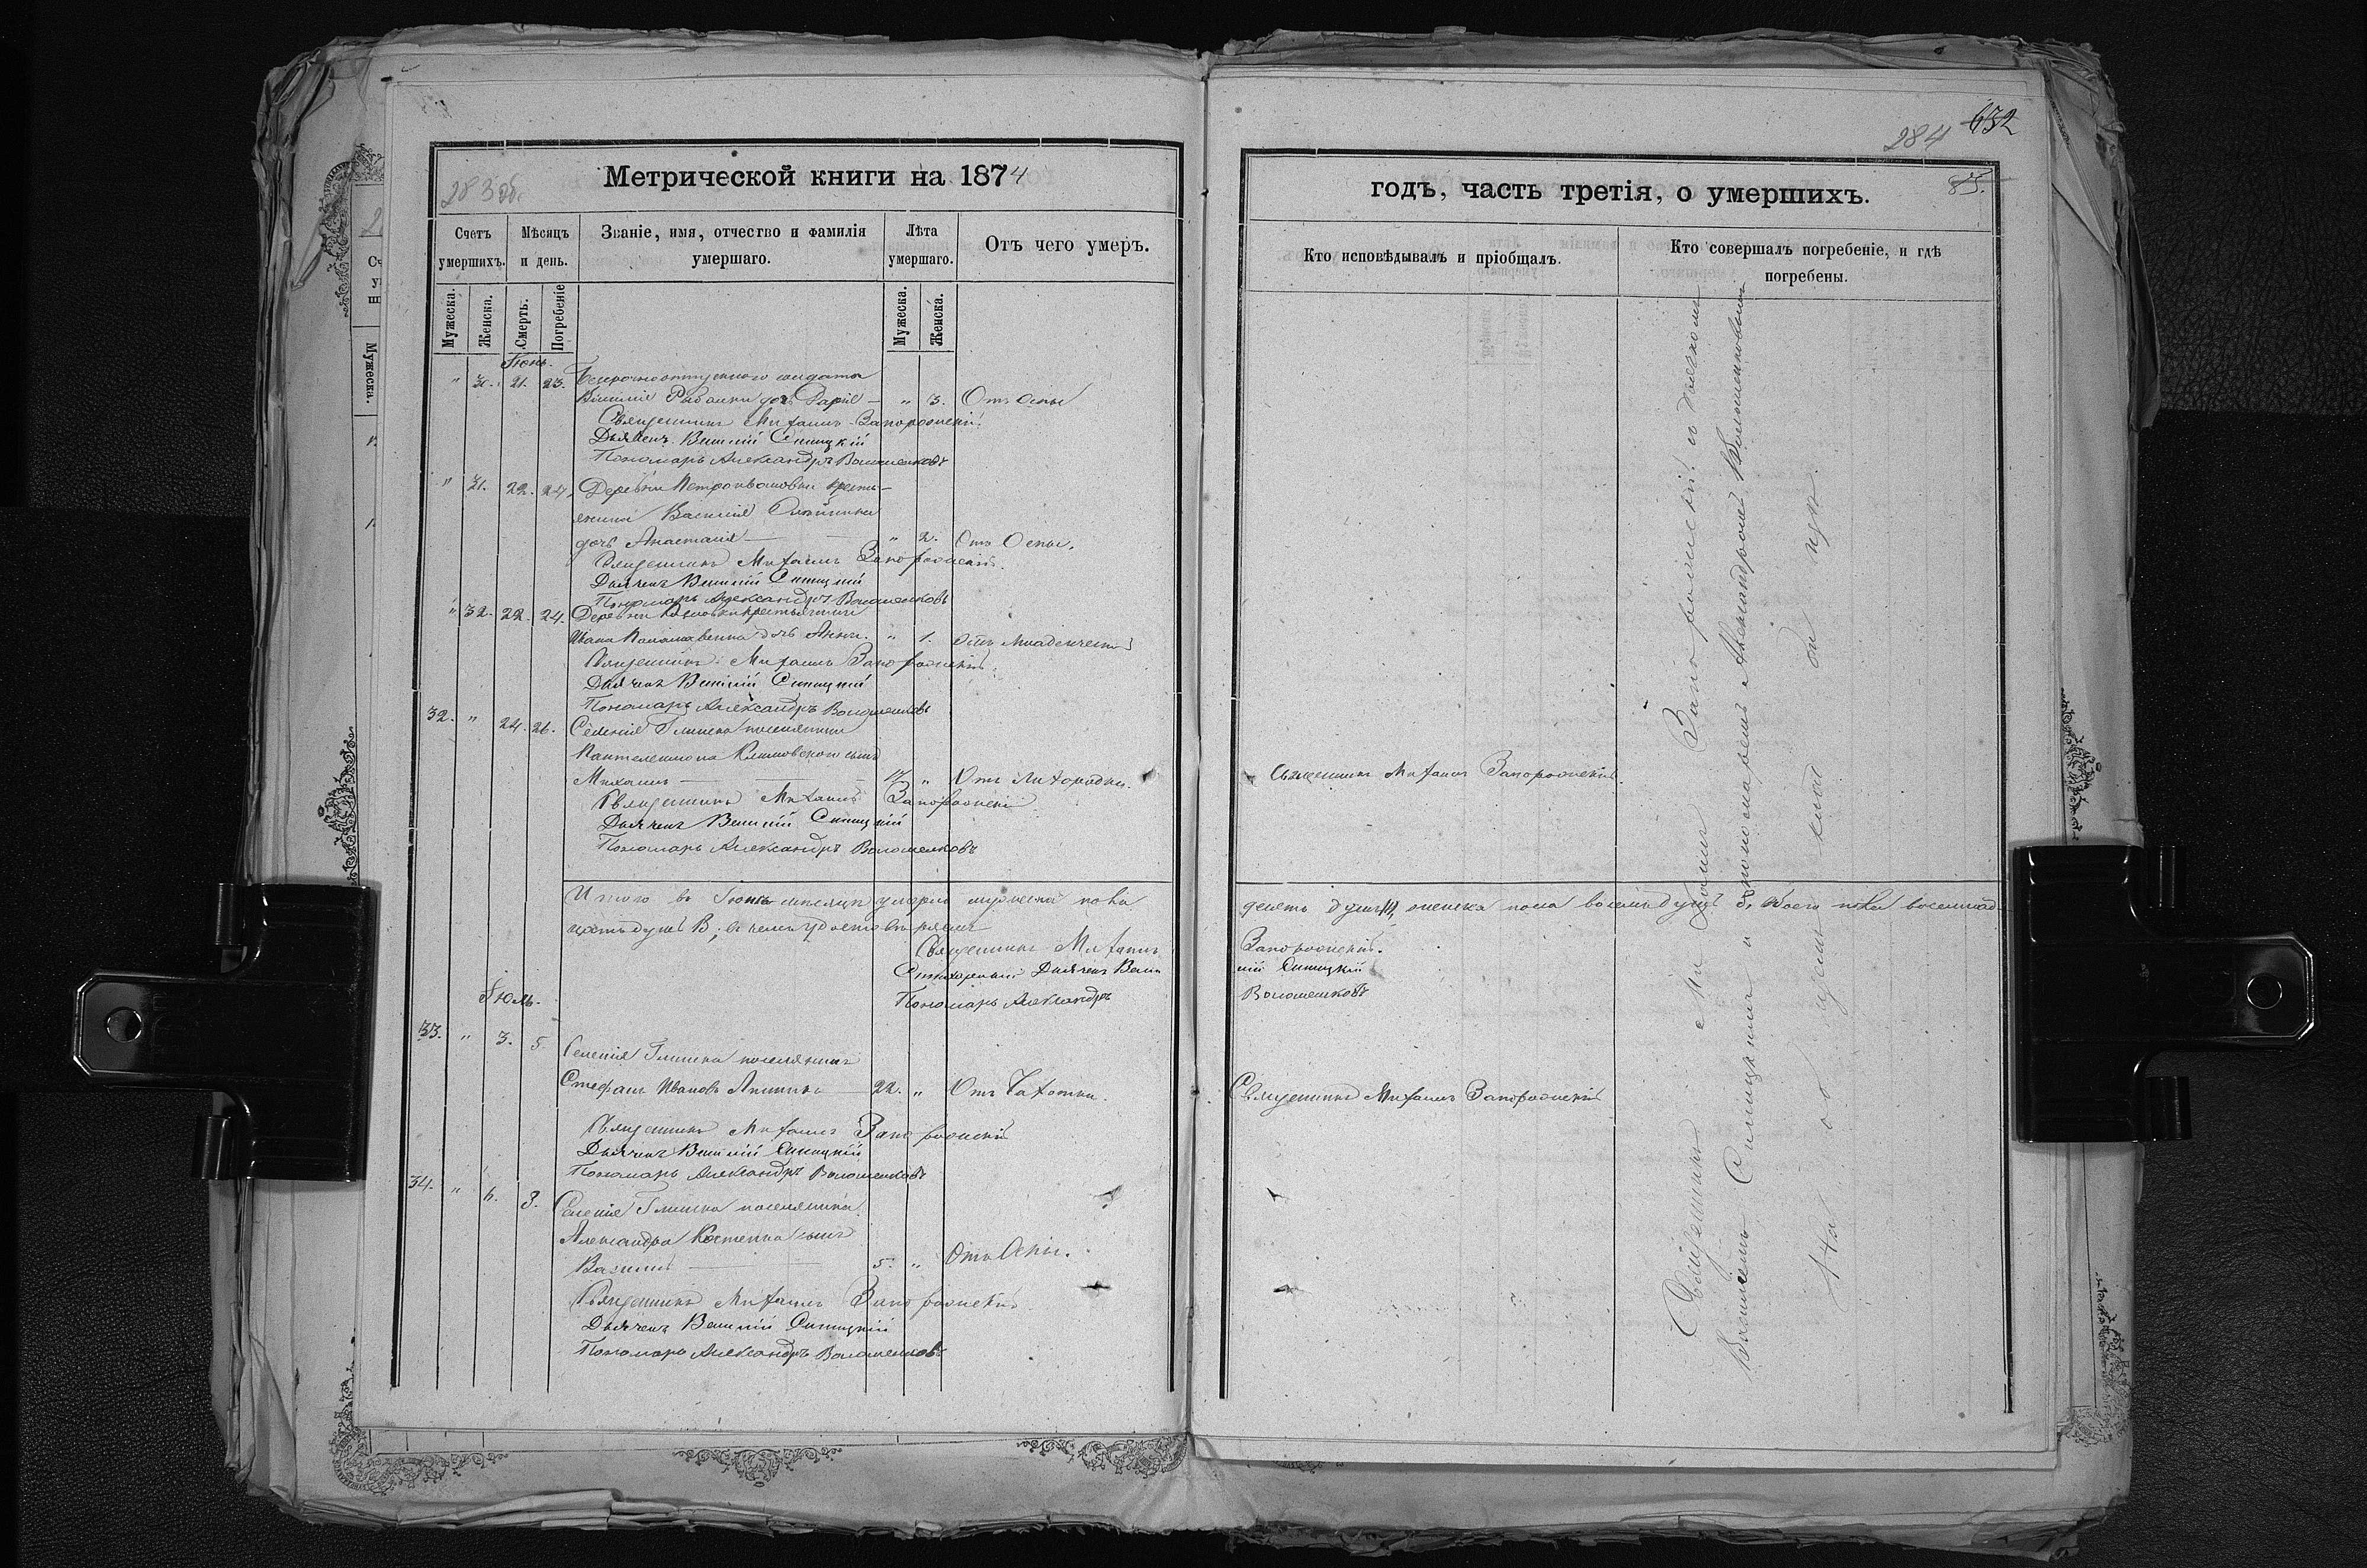 283 об.
Метрической книги на 1874
Счетъ умершихъ.
Мѣсяцъ и день.
Званіе, имя, отчество и фамилія умершаго.
Лѣта умершаго.
Отъ чего умеръ.
Мужеска.
Женска.
Смерть.
Погребеніе
Мужеска.
Женска.
Іюнь.
" 30. 21. 23. Безсрочноотпускного солдата
дочь " 3. Отъ Оспы
Священникъ Михаилъ Запорожскій
Дьячекъ Василій Синицкій
Пономарь Александръ Волошенковъ
" 31. 22. 24. Деревни Петроивановки кресть-
янина Василія
дочь Анастасія " 2. Отъ Оспы.
Священникъ Михаилъ Запорожскій.
Дьячекъ Василій Синицкій
Пономарь Александръ Волошенковъ
" 32. 22. 24. Деревни крестьянина
Ивана дочь Анна. " 1. Отъ младенческой
Священникъ Михаилъ Запорожскій.
Дьячекъ Василій Синицкій
Пономарь Александръ Волошенковъ
32. " 24. 26. Селенія Глинска поселянина
Пантелеимона Климовского сынъ
Михаилъ " Отъ Лихорадки.
Священникъ Михаилъ Запорожскій
Дьячекъ Василій Синицкій
Пономарь Александръ Волошенковъ
Итого въ Іюнѣ мѣсяцѣ умерло мужеска пола
цать душъ
Священникъ Михаилъ
Дьячекъ Васи
Пономарь Александръ
Іюль.
33. " 3. 5. Селенія Глинска поселянинъ
Стефанъ Ивановъ 22. " Отъ Чахотки.
Священникъ Михаилъ Запорожскій
Дьячекъ Василій Синицкій
Пономарь Александръ Волошенковъ
34. " 6. 8. Селенія Глинска поселянина
Александра Костенка сынъ
Василій 5. " Отъ Оспы.
Священникъ Михаилъ Запорожскій
Дьячекъ Василій Синицкій
Пономарь Александръ Волошенковъ
284 652
85.
годъ, часть третія, о умершихъ.
Кто исповѣдывалъ и пріобщалъ.
Кто совершалъ погребеніе, и гдѣ погребены.
Священникъ Михаилъ Запорожскій.
десять душъ, женска пола восемь душъ 8, обоего пола восемнад-
Запорожскій.
лій Синицкій
Волошенковъ
Священникъ Михаилъ Запорожскій
Священникъ Михаилъ Запорожскій съ дьячкомъ
Василіемъ Синицкимъ и пономаремъ Александромъ Волошенковымъ
На общемъ кладбищѣ.